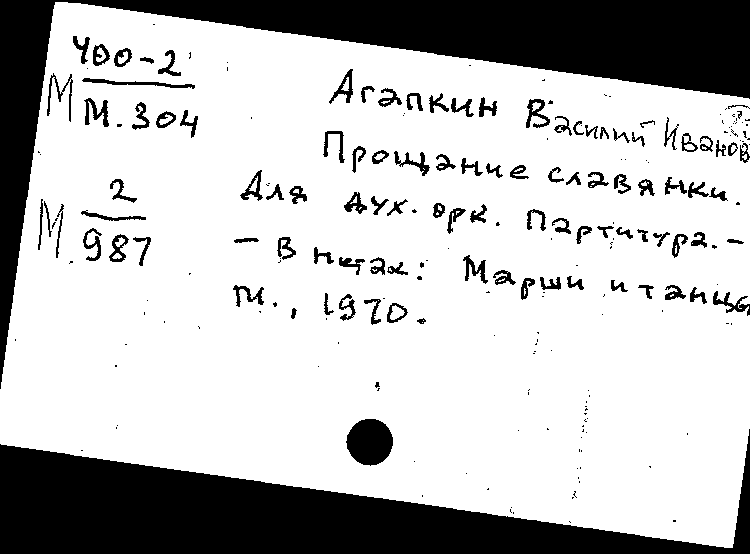 М 400-2
М.304
Агапкин Василий Иванов
Прощание славянки.
М 2
987
Для дух. орк. Партитура. –
– В нотах: Марши и танцы
М., 1970.